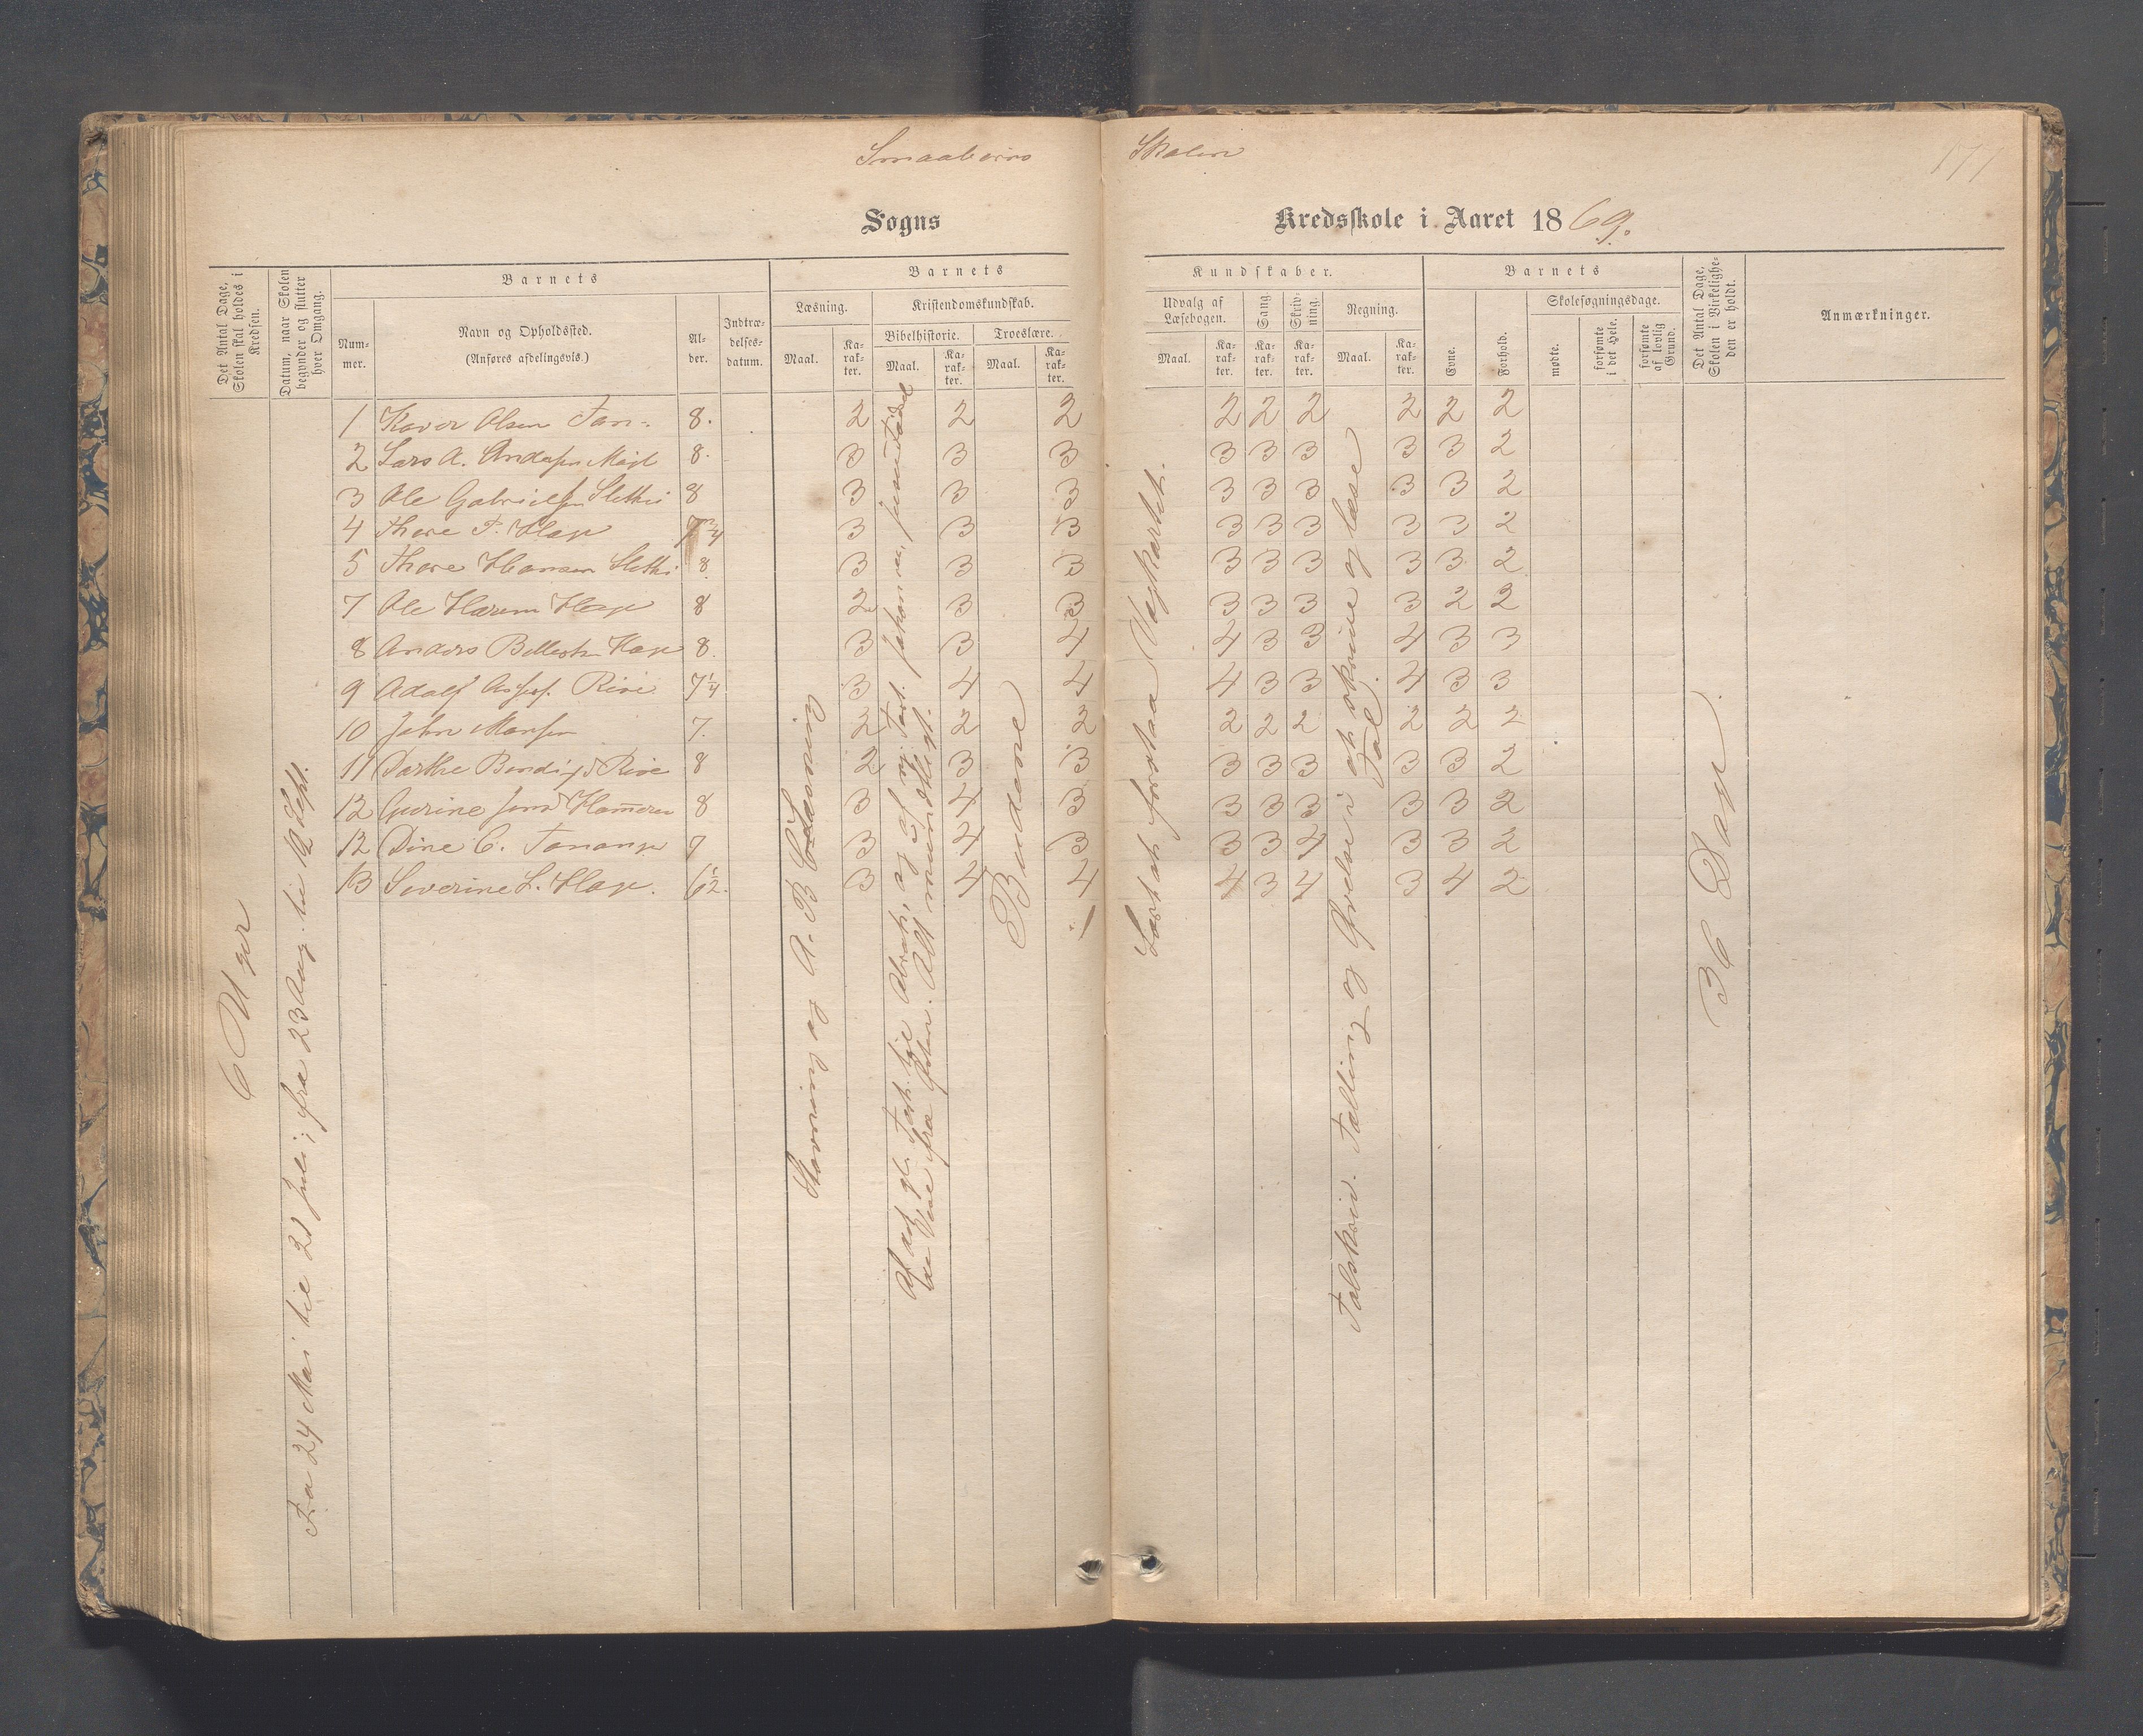 Smaabørns
Skolen
171
Sogns
Kredsskole i Aaret 1869.
Det Antal Dage, Skolen skal holdes i Kredsen.
Datum, naar Skolen begynder og slutter hver Omgang.
Barnets
Nummer.
Navn og Opholdssted.
(Anføres afdelingsvis.)
Alder.
Indtrædelsesdatum.
Barnets
Læsning.
Maal.
Karakter.
Kristendomskundskab.
Bibelhistorie.
Maal.
Karakter.
Troeslære.
Maal.
Karakter.
Kundskaber.
Udvalg af Læsebogen.
Maal.
Karakter.
Sang.
Karakter.
Skrivning.
Karakter.
Regning.
Maal.
Karakter.
Barnets
Evne.
Forhold.
Skolesøgningsdage.
mødte.
forsømte i det Hele.
forsømte af lovlig Grund.
Det Antal Dage, Skolen i Virkeligheden er holdt.
Anmærkninger.
1 Olsen 8. 2 2 2 2 2 2 2 2 2
2 Lars A. 8. 3 3 3 3 3 3 3 3 2
3 Ole Gabrielsen 8 3 3 3 3 3 3 3 3 2
4 Thore T. Hage 7 3/4 3 3 3 3 3 3 3 3 2
5 Thore Hansen 8 3 3 3 3 3 3 3 3 2
7 Ole Hage 8 2 3 3 3 3 3 3 2 2
8 Anders Hage 8. 3 3 4 4 3 3 4 3 3
9 Adolf 7 1/4 3 4 4 4 3 3 4 3 3
10 John 7. 2 2 2 2 2 2 2 2 2
11 Dorthe 8 2 3 3 3 3 3 3 3 2
12 Gurine 8 3 4 3 3 3 3 3 3 2
12 Dine C. Tananger 7 3 4 3 3 3 4 3 3 2
13 Severine L. Hage. 6 1/2. 3 4 4 4 3 4 3 4 2
6 Uger
Fra 24 Mai til 21 Juli; fra 23 Aug. til Sept.
Stavning og A. B C Læsning
Af det gl. Test. til Abrah, og af ny Test.
fra Alt mundtligt.
Budene
Læst at forstaa
Talskriv. Tælling og Øvelse i at skrive og læse
Tal.
36 Dage